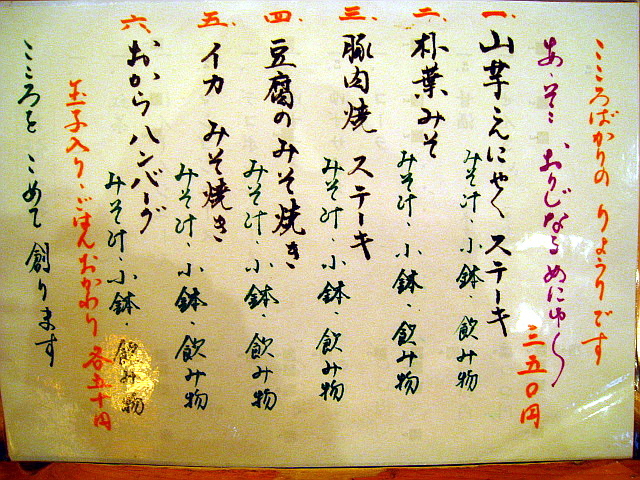 こころばかりの りょうりです
あ・そこ おりじなる めにゅ〜
三五〇円
一、山芋こんにゃく ステーキ
みそ汁・小鉢・飲み物
二、朴葉みそ
みそ汁・小鉢・飲み物
三、豚肉焼 ステーキ
みそ汁・小鉢・飲み物
四、豆腐の みそ焼き
みそ汁・小鉢・飲み物
五、イカ みそ焼き
みそ汁・小鉢・飲み物
六、おから ハンバーグ
みそ汁・小鉢・飲み物
玉子入り・ごはん おかわり 各五十円
こころを こめて 創ります